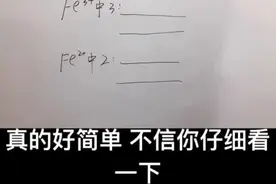 Fe³⁺中3：
Fe²⁺中2：
真的好简单 不信你仔细看
一下